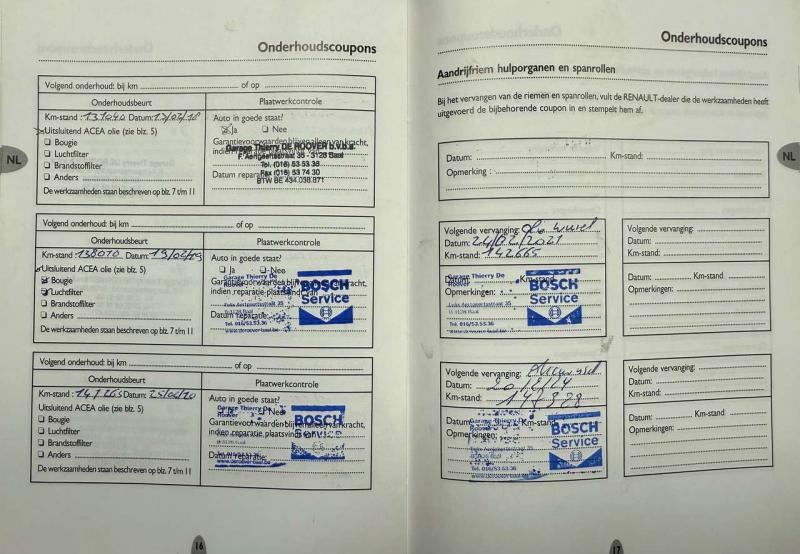 Onderhoudscoupons
Volgend onderhoud: bij km of op
Onderhoudsbeurt Plaatwerkcontrole
Km-stand : 131040 Datum: 12/02/18
Uitsluitend ACEA olie (zie blz. 5)
Bougie
Luchtfilter
Brandstoffilter
Anders
De werkzaamheden staan beschreven op blz. 7 t/m 11
Auto in goede staat?
Ja Nee
Garantievoorwaarden blijven alleen van kracht,
indien reparatie plaatsvindt
Datum reparatie
Garage Thierry DE ROOVER b.v.b.a.
F. Aerigeertsstraat 35 - 3128 Baal
Tel. (016) 53 53 36
Fax (016) 53 74 30
BTW BE 434.038.871
Volgend onderhoud: bij km of op
Onderhoudsbeurt Plaatwerkcontrole
Km-stand : 138010 Datum: 19/02/19
Uitsluitend ACEA olie (zie blz. 5)
Bougie
Luchtfilter
Brandstoffilter
Anders
De werkzaamheden staan beschreven op blz. 7 t/m 11
Auto in goede staat?
Ja Nee
Garantievoorwaarden blijven van kracht,
indien reparatie plaatsvindt
Datum reparatie:
Garage Thierry De
Roover
Tel. 016/53.53.36
BOSCH
Service
Volgend onderhoud: bij km of op
Onderhoudsbeurt Plaatwerkcontrole
Km-stand : Datum:
Uitsluitend ACEA olie (zie blz. 5)
Bougie
Luchtfilter
Brandstoffilter
Anders
De werkzaamheden staan beschreven op blz. 7 t/m 11
Auto in goede staat?
Nee
Garantievoorwaarden blijven alleen van kracht,
indien reparatie plaatsvindt van
Datum reparatie:
Garage Thierry De
Roover
Tel. 016/53.53.36
www.deroover-baal.be
BOSCH
Service
NL
16
Onderhoudscoupons
Aandrijfriem hulporganen en spanrollen
Bij het vervangen van de riemen en spanrollen, vult de RENAULT-dealer die de werkzaamheden heeft
uitgevoerd de bijbehorende coupon in en stempelt hem af.
Datum: Km-stand:
Opmerking :
Volgende vervanging:
Datum: 24/02/2021
Km-stand: 142665
Datum: Km-stand:
Opmerkingen:
Garage Thierry De
Roover
Tel. 016/53.53.36
BOSCH
Service
Volgende vervanging:
Datum:
Km-stand:
Datum: Km-stand:
Opmerkingen:
Volgende vervanging:
Datum:
Km-stand:
Datum: Km-stand:
Opmerkingen:
Tel. 016/53.53.36
BOSCH
Service
Volgende vervanging:
Datum:
Km-stand:
Datum: Km-stand:
Opmerkingen:
NL
17